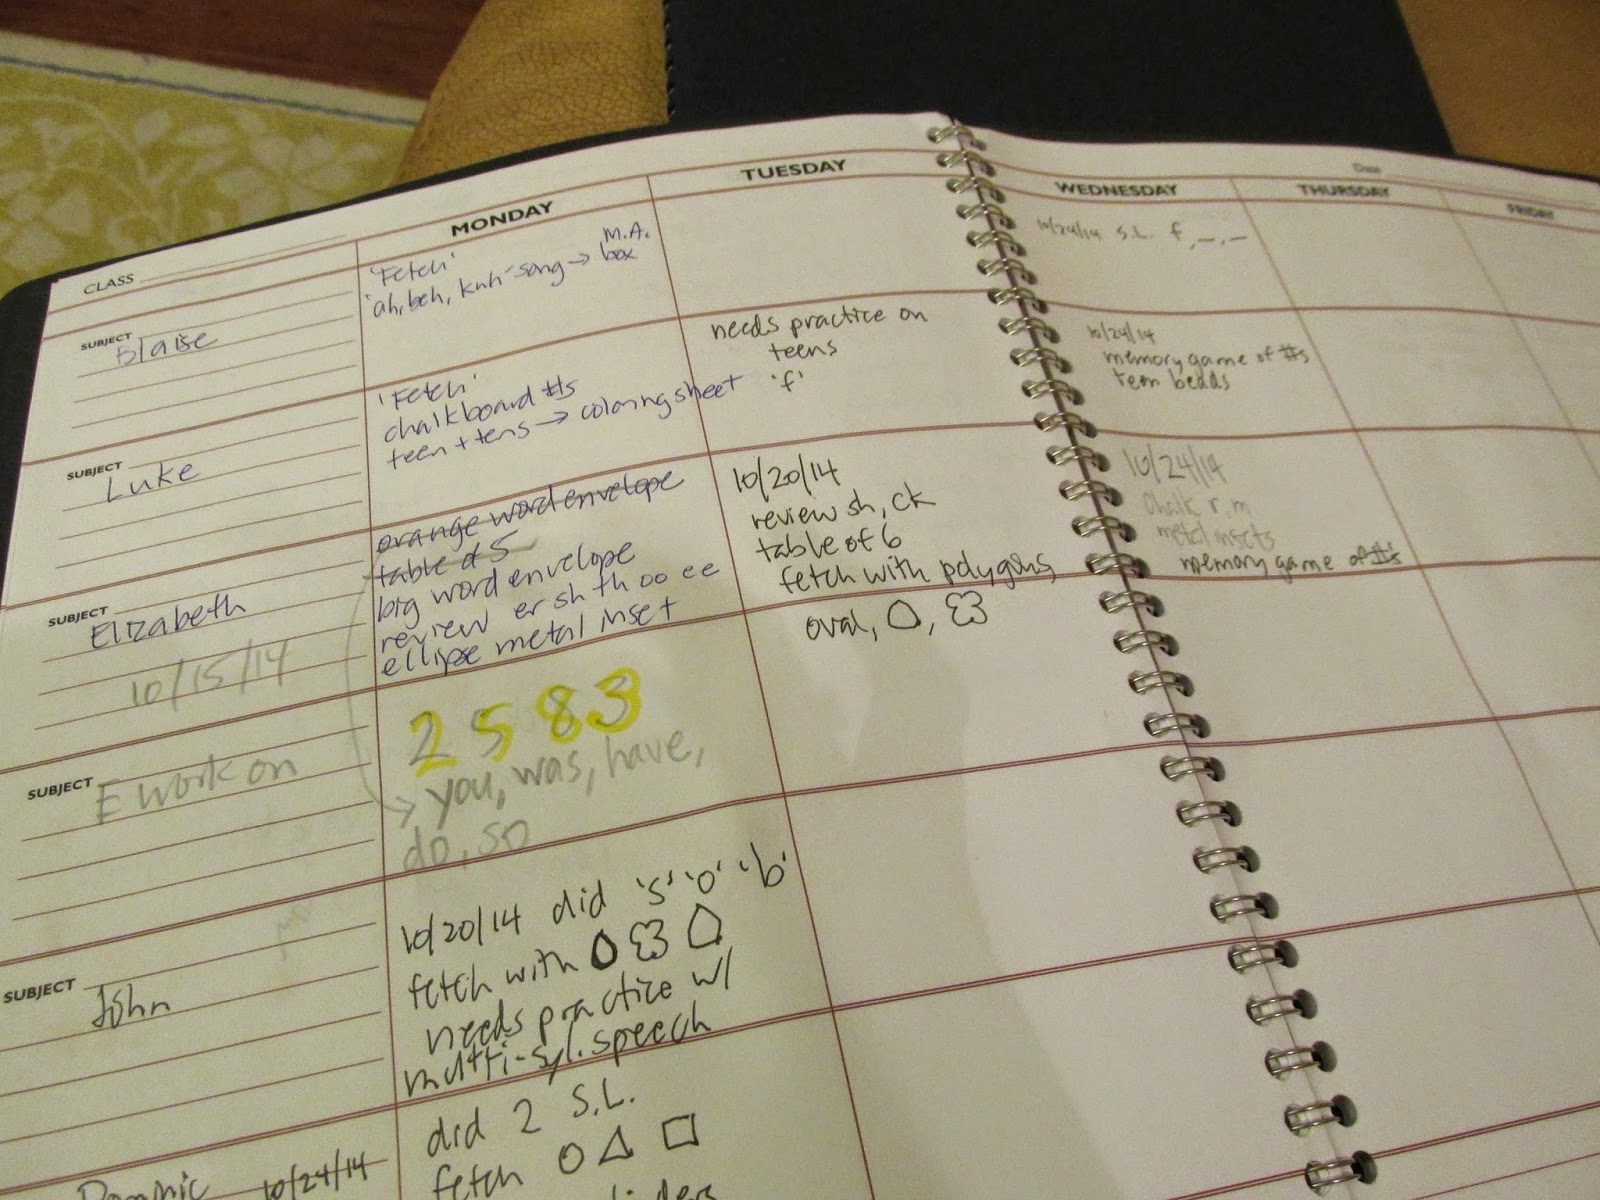 CLASS
MONDAY
TUESDAY
WEDNESDAY
THURSDAY
FRIDAY
Date
SUBJECT
Blaise
'Fetch'
'ah, beh, kuh' song → M.A. box
10/24/14 S.L. f, _, _
SUBJECT
Luke
'Fetch'
chalkboard #s
teen + tens → coloring sheet
needs practice on
teens
'f'
10/24/14
memory game of #s
teen beads
SUBJECT
Elizabeth
10/15/14
orange word envelope
table of 5
big word envelope
review er sh th oo ee
ellipse metal inset
10/20/14
review sh, ck
table of 6
fetch with polygons,
oval,
10/24/14
Chalk r, m
metal insets
memory game of #s
SUBJECT
E work on
2 5 8 3
→ you, was, have,
do, so
SUBJECT
John
10/20/14 did 's' 'o' 'b'
fetch with
needs practice w/
multi-syl. speech
Dominic 10/24/14
did 2 S.L.
fetch